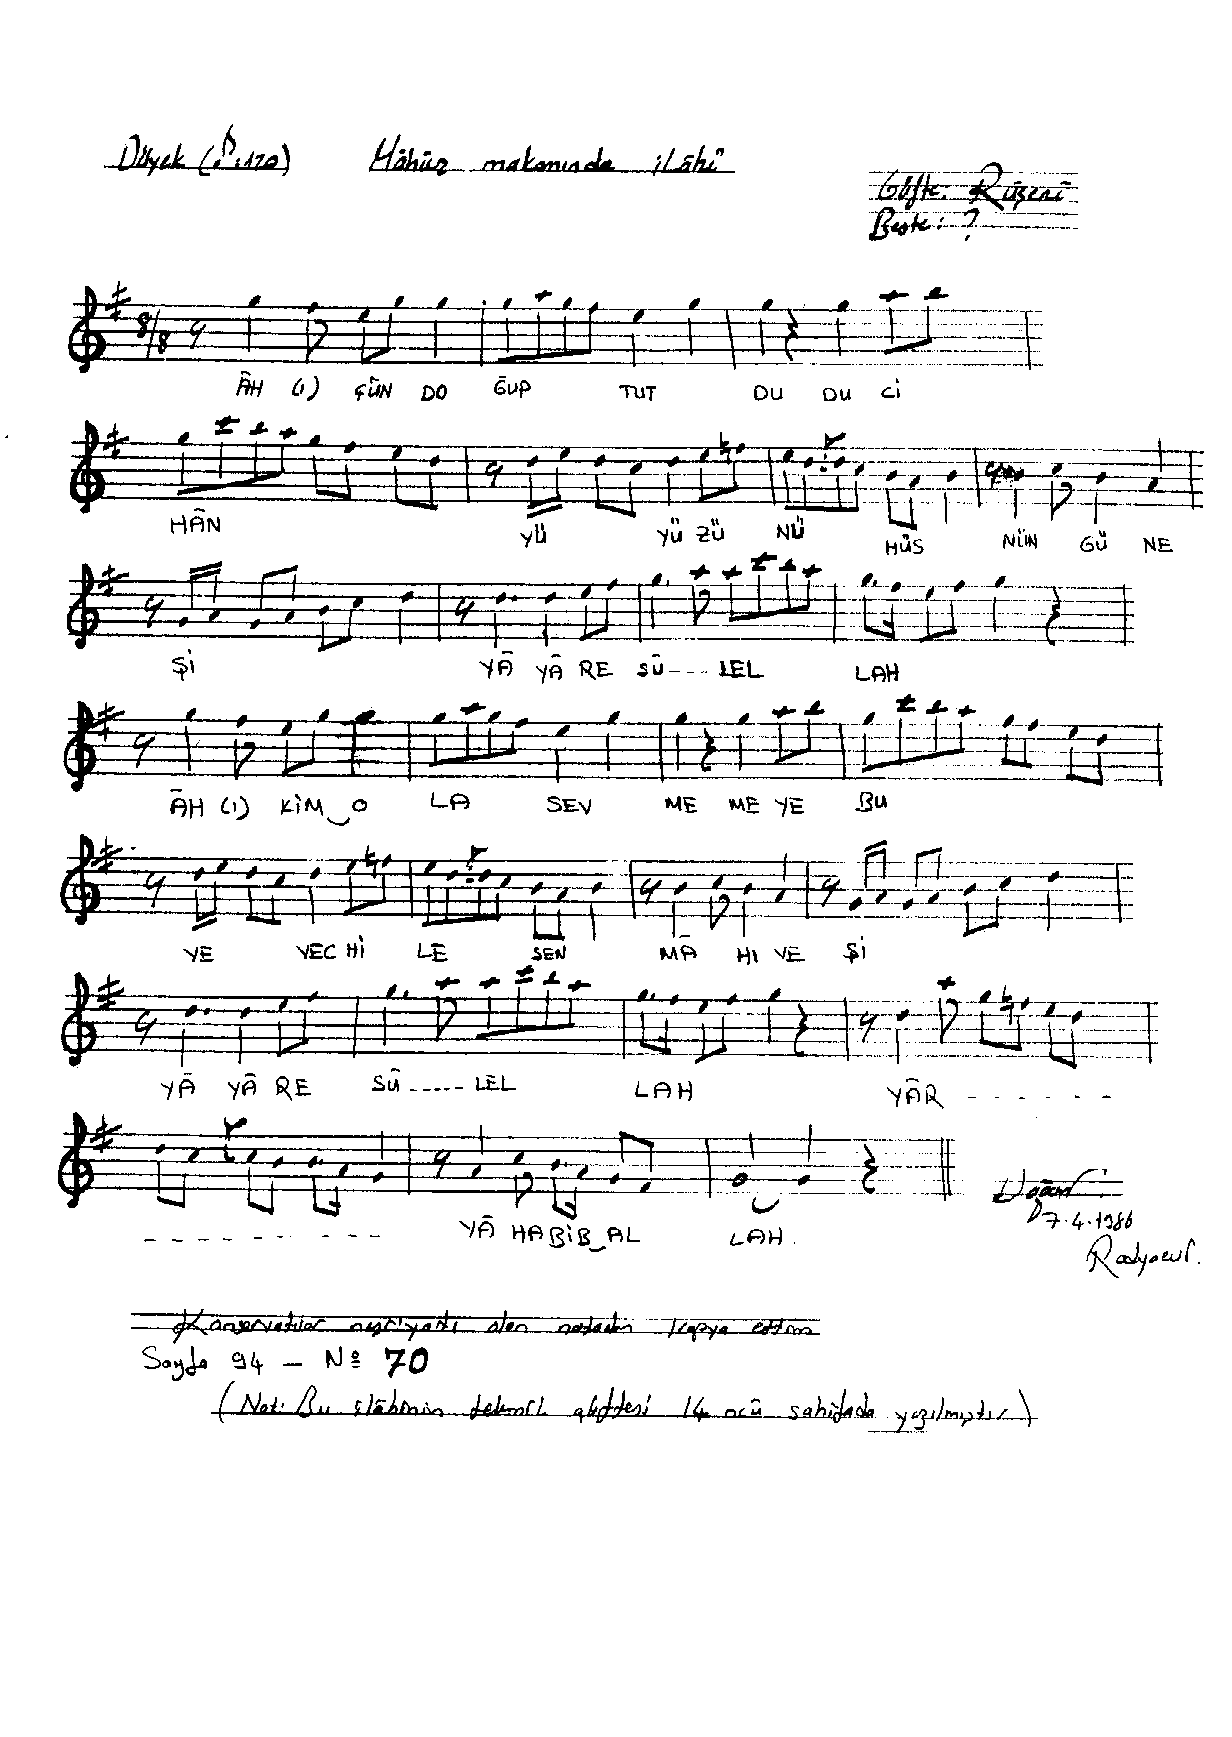 Düyek (♪:120) Mâhûr makamında ilâhî
Güfte: Rûşenî
Beste: ?
8/8
ÂH (I) GÜN DO ĞUP TUT DU DU Cİ
HÂN YÜ YÜ ZÜ NÜ HÜS NÜN GÜ NE
Şİ YÂ YÂ RE SÛ---- LEL LAH
ÂH (I) KİM O LA SEV ME ME YE BU
YE VECHİ LE SEN MÂ HI VE Şİ
YÂ YÂ RE SÛ----- LEL LAH YÂR - - - - - -
- - - - - - - - - YÂ HABİB AL LAH.
7.4.1986
Konservatuar neşriyatı olan notadan kopya ettim
Sayfa 94 – Nº 70
(Not: Bu ilâhinin tekmil güftesi 14 ncü sahifada yazılmıştır)